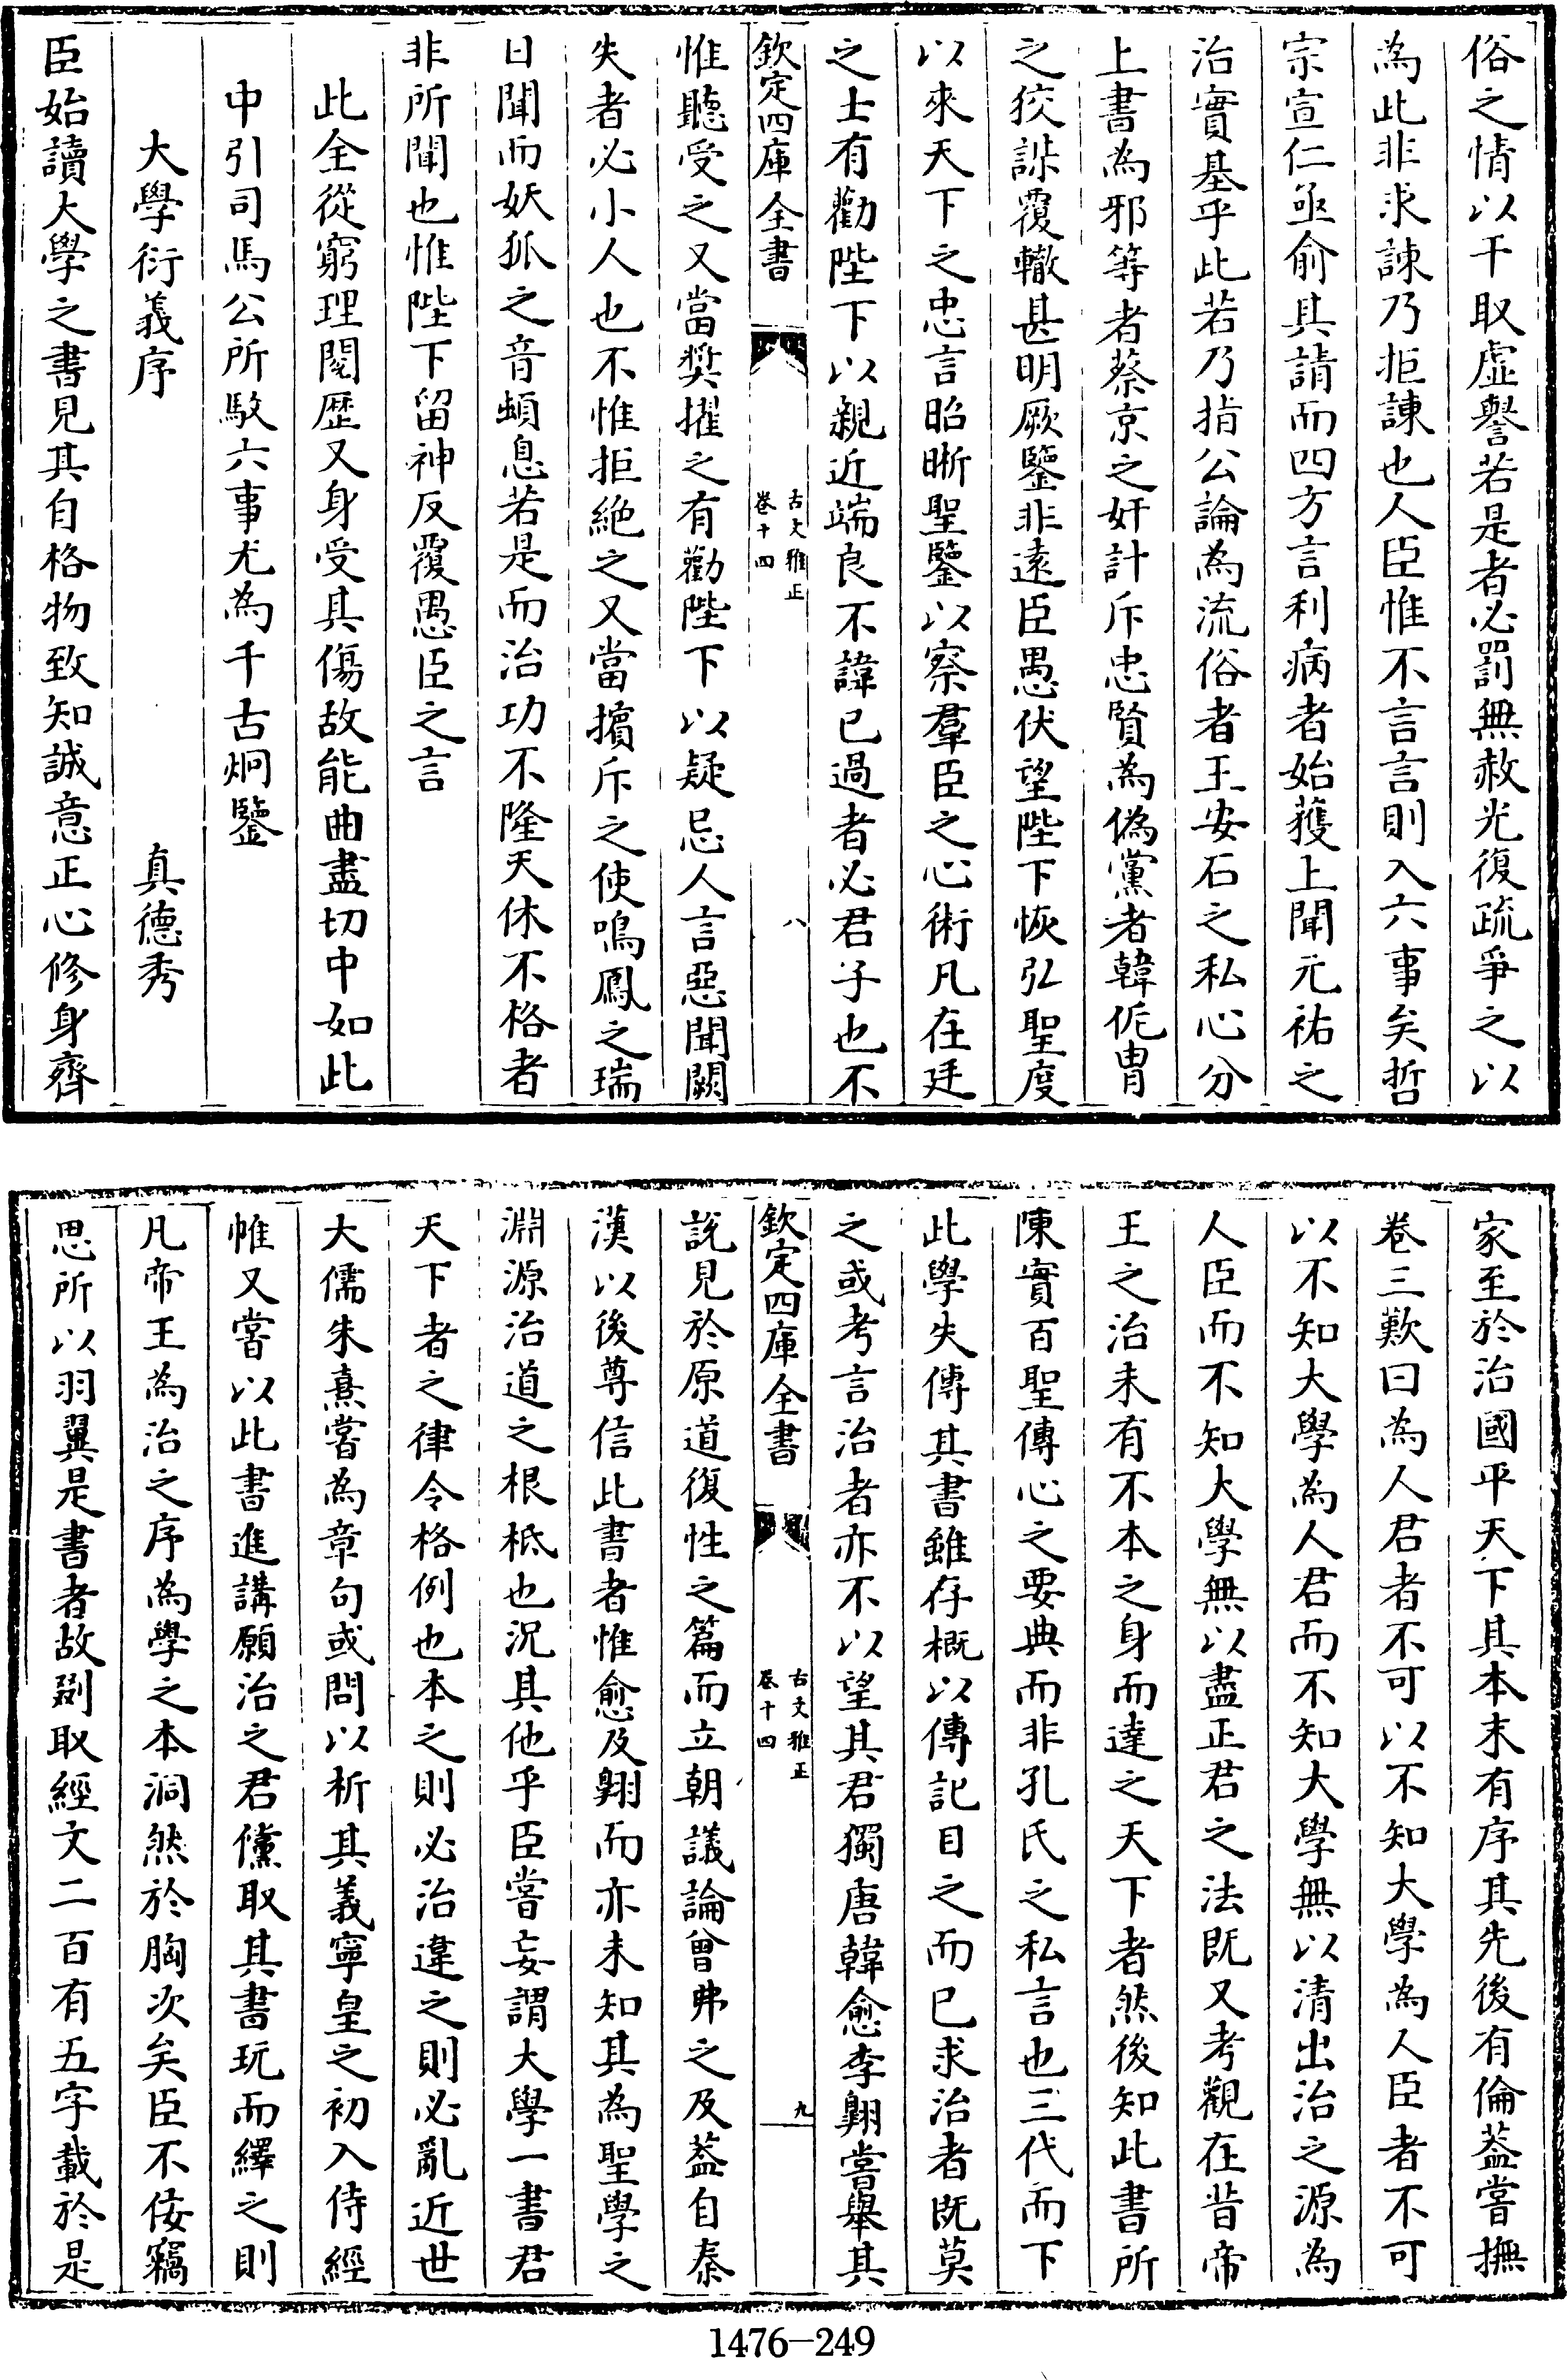 俗之情以干取虛譽若是者必罰無赦光復疏爭之以
為此非求諫乃拒諫也人臣惟不言言則入六事矣哲
宗宣仁亟俞其請而四方言利病者始獲上聞元祐之
治實基乎此若乃指公論為流俗者王安石之私心分
上書為邪等者蔡京之奸計斥忠賢為偽黨者韓侂胄
之狡謀覆轍甚明厥鑒非遠臣愚伏望陛下恢弘聖度
以來天下之忠言昭晰聖鑒以察羣臣之心術凡在廷
之士有勸陛下以親近端良不諱已過者必君子也不
欽定四庫全書
古文雅正
卷十四
八
惟聽受之又當奬擢之有勸陛下以疑忌人言惡聞闕
失者必小人也不惟拒絶之又當擯斥之使鳴鳳之瑞
日聞而妖狐之音頓息若是而治功不隆天休不格者
非所聞也惟陛下留神反覆愚臣之言
此全從窮理閱歷又身受其傷故能曲盡切中如此
中引司馬公所駮六事尤為千古炯鑒
大學衍義序
真德秀
臣始讀大學之書見其自格物致知誠意正心修身齊
家至於治國平天下其本末有序其先後有倫葢嘗撫
卷三歎曰為人君者不可以不知大學為人臣者不可
以不知大學為人君而不知大學無以清出治之源為
人臣而不知大學無以盡正君之法既又考觀在昔帝
王之治未有不本之身而達之天下者然後知此書所
陳實百聖傳心之要典而非孔氏之私言也三代而下
此學失傳其書雖存概以傳記目之而已求治者既莫
之或考言治者亦不以望其君獨唐韓愈李翺嘗舉其
欽定四庫全書
古文雅正
卷十四
九
說見於原道復性之篇而立朝議論曾弗之及葢自秦
漢以後尊信此書者惟愈及翺而亦未知其為聖學之
淵源治道之根柢也況其他乎臣嘗妄謂大學一書君
天下者之律令格例也本之則必治違之則必亂近世
大儒朱熹嘗為章句或問以析其義寧皇之初入侍經
帷又嘗以此書進講願治之君儻取其書玩而繹之則
凡帝王為治之序為學之本洞然於胸次矣臣不佞竊
思所以羽翼是書者故剟取經文二百有五字載於是
1476-249